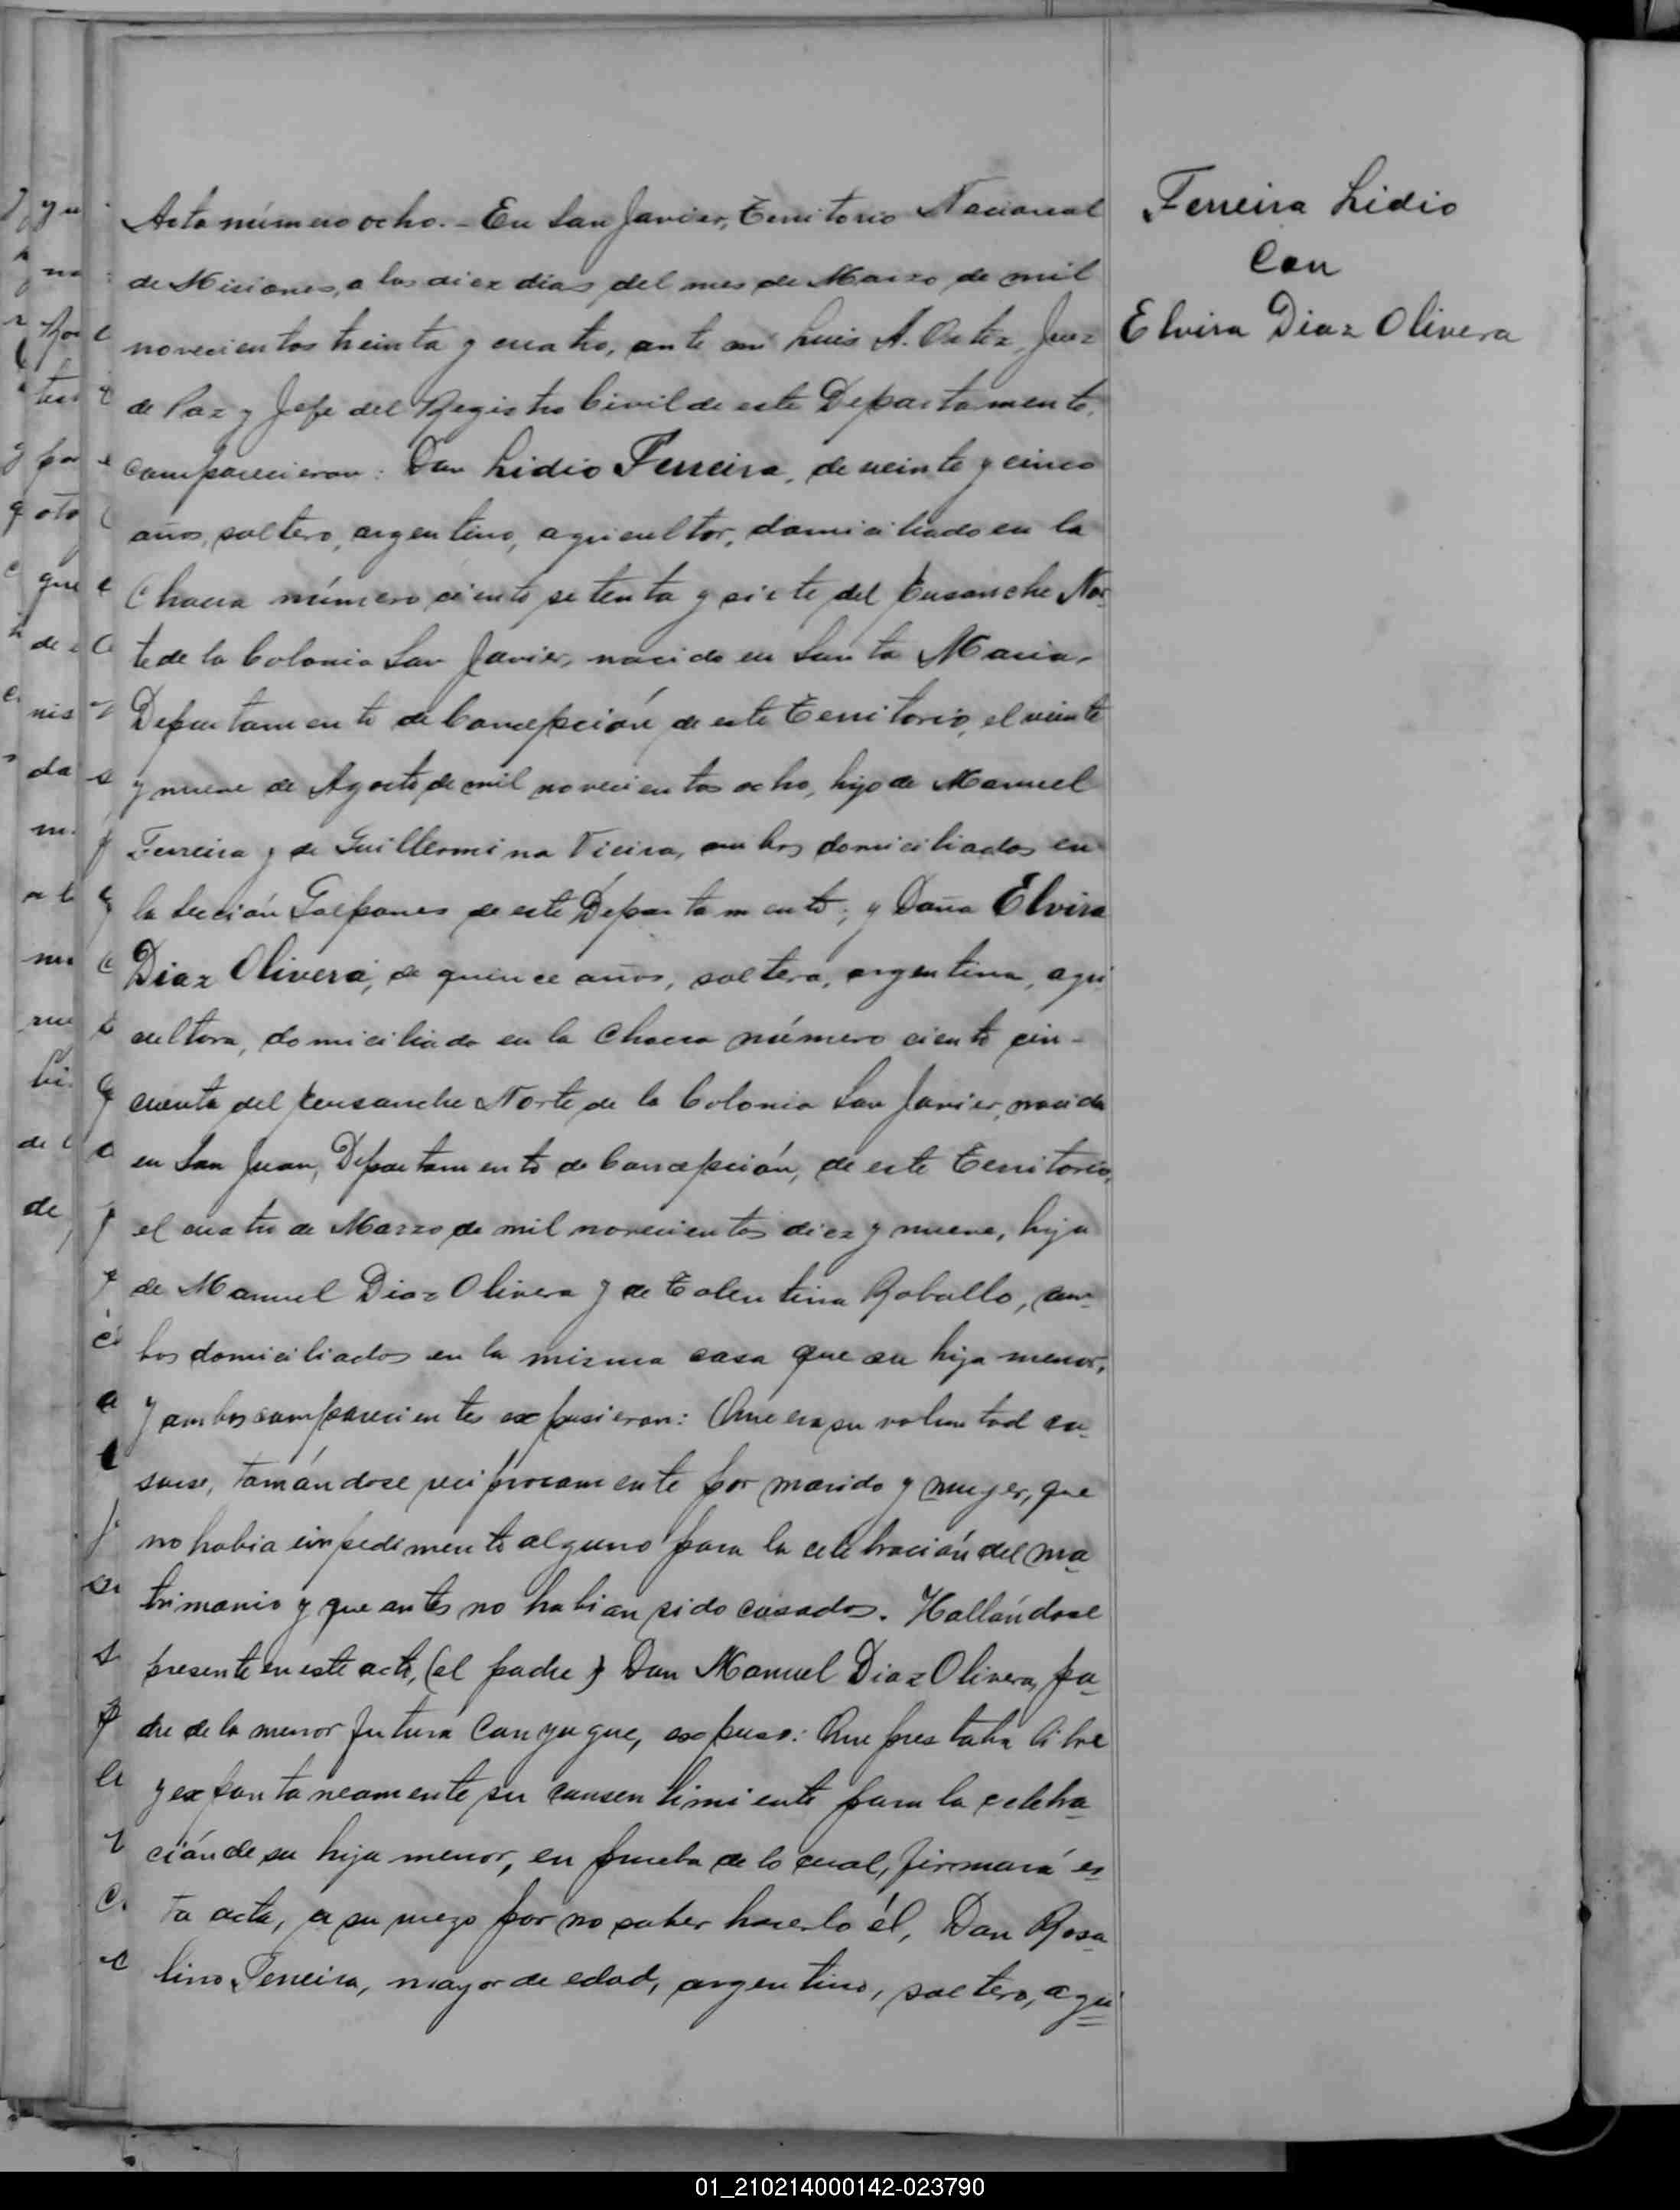 Acta número ocho. - En San Javier, Territorio Nacional
de Misiones, a los diez dias del mes de Marzo de mil
novecientos treinta y cuatro, ante mi Luis A. Ortiz, Juez
de Paz y Jefe del Registro Civil de este Departamento,
comparecieron: Don Lidio Ferreira, de veinte y cinco
años, soltero, argentino, agricultor, domiciliado en la
Chacra número ciento setenta y siete del Ensanche Nor-
te de la Colonia San Javier, nacido en Santa Maria,
Departamento de Concepción de este Territorio, el veinte
y nueve de Agosto de mil novecientos ocho, hijo de Manuel
Ferreira y de Guillermina Vieira, ambos domiciliados en
la Sección Galpones de este Departamento; y Doña Elvira
Diaz Olivera, de quince años, soltera, argentina, agri
cultora, domiciliada en la Chacra número ciento cin-
cuenta del Ensanche Norte de la Colonia San Javier, nacida
en San Juan, Departamento de Concepción, de este Territorio,
el cuatro de Marzo de mil novecientos diez y nueve, hija
de Manuel Diaz Olivera y de Tolentina Roballo, am-
bos domiciliados en la misma casa que su hija menor,
y ambos comparecientes expusieron: Que era su voluntad ca-
sarse, tomándose reciprocamente por marido y mujer, que
no habia impedimento alguno para la celebración del ma-
trimonio y que antes no habian sido casados. Hallándose
presente en este acto, (el padre) Don Manuel Diaz Olivera, pa-
dre de la menor futura conyugue, expuso: Que prestaba libre
y expontaneamente su consentimiento para la celebra-
ción de su hija menor, en prueba de lo cual, firmará es-
ta acta, a su ruego por no saber hacerlo él, Don Rosa-
lino Ferreira, mayor de edad, argentino, soltero, agri
Ferreira Lidio
Con
Elvira Diaz Olivera
01_210214000142-023790